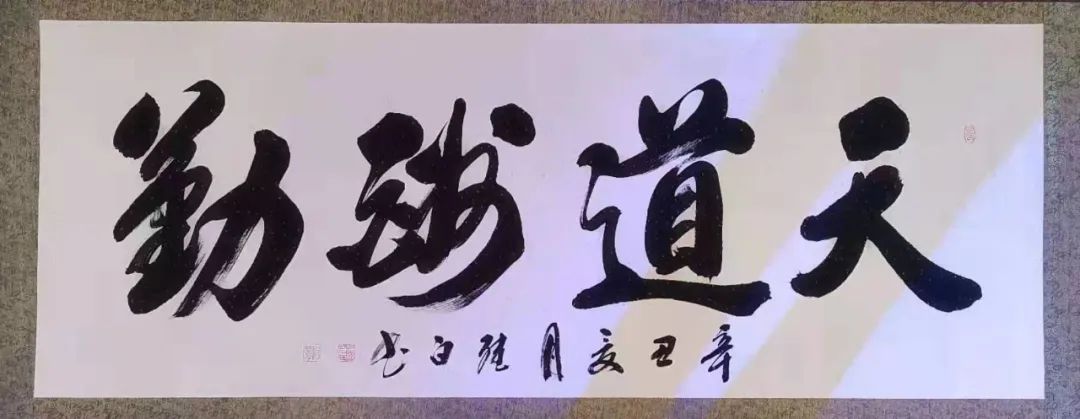 天道酬勤
辛丑夏月白书